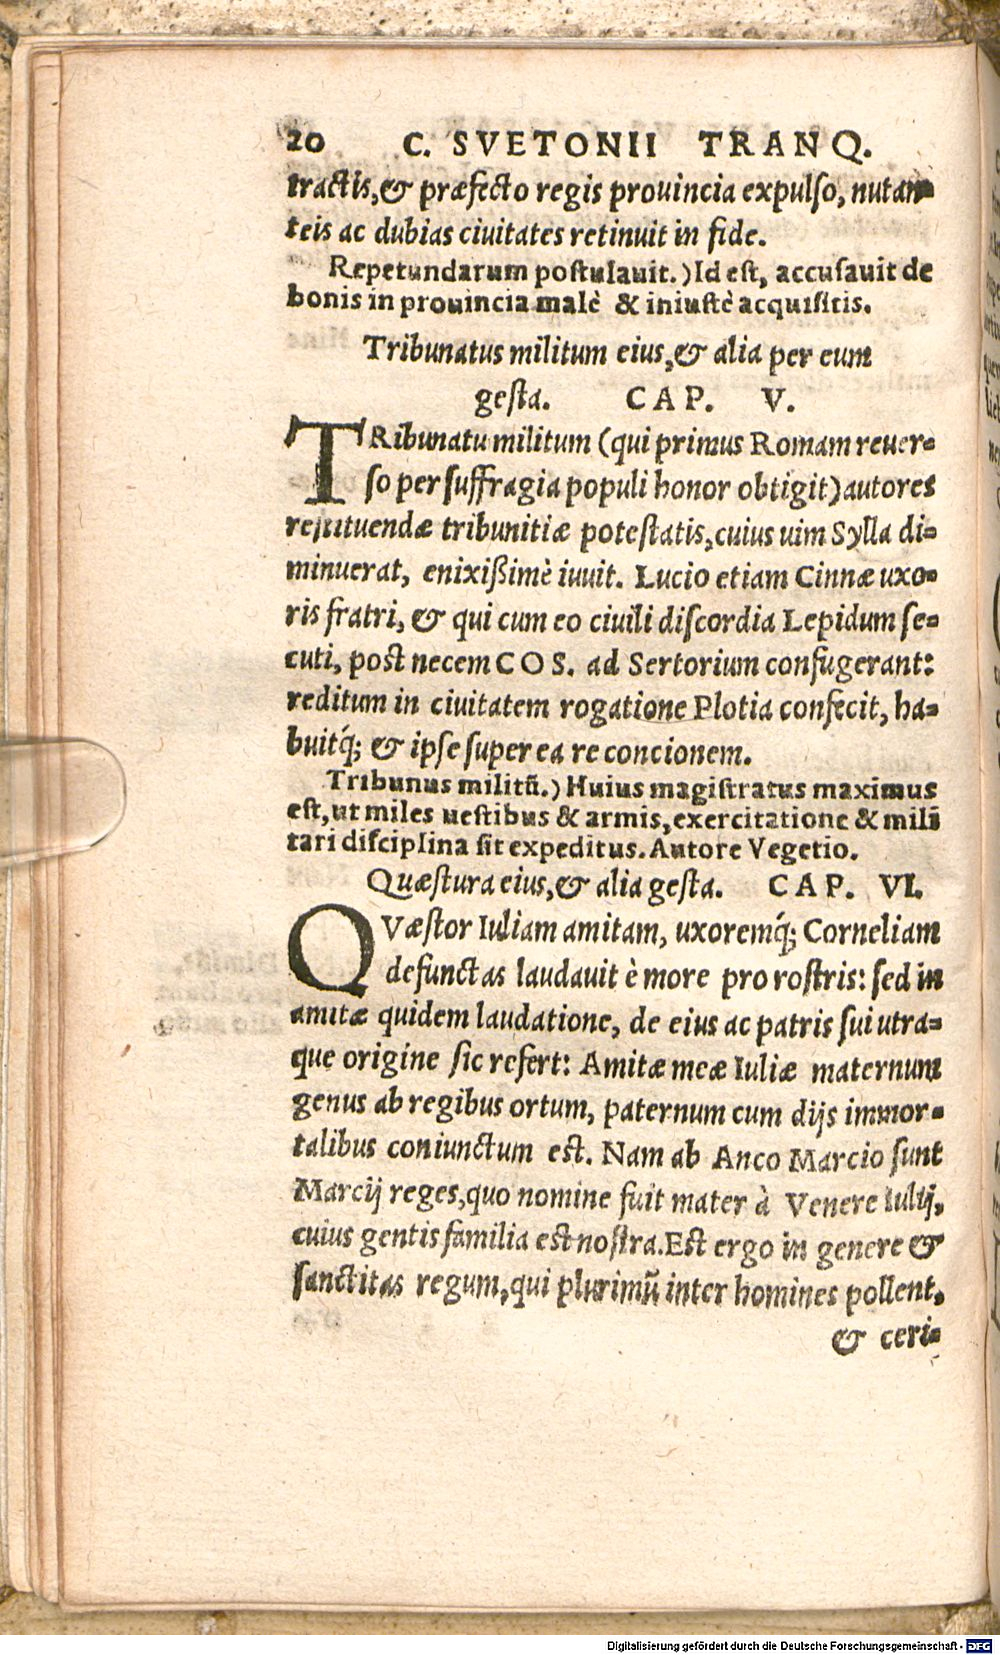 20 C. SVETONII TRANQ.
tractis, & præfecto regis prouincia expulso, nutan-
teis ac dubias ciuitates retinuit in fide.
Repetundarum postulauit.) Id est, accusauit de
bonis in prouincia malè & iniustè acquisitis.
Tribunatus militum eius, & alia per eum
gesta. CAP. V.
TRibunatu militum (qui primus Romam reuer-
so per suffragia populi honor obtigit) autores
restituendæ tribunitiæ potestatis, cuius uim Sylla di-
minuerat, enixißimè iuuit. Lucio etiam Cinnæ uxo-
ris fratri, & qui cum eo ciuili discordia Lepidum se-
cuti, post necem COS. ad Sertorium confugerant:
reditum in ciuitatem rogatione Plotia confecit, ha-
buitq́; & ipse super ea re concionem.
Tribunus militũ.) Huius magistratus maximus
est, ut miles uestibus & armis, exercitatione & mili
tari disciplina sit expeditus. Autore Vegetio.
Quæstura eius, & alia gesta. CAP. VI.
QVæstor Iuliam amitam, uxoremq́; Corneliam
defunctas laudauit è more pro rostris: sed in
amitæ quidem laudatione, de eius ac patris sui utra-
que origine sic refert: Amitæ meæ Iuliæ maternum
genus ab regibus ortum, paternum cum dijs immor-
talibus coniunctum est. Nam ab Anco Marcio sunt
Marcij reges, quo nomine fuit mater à Venere Iulij,
cuius gentis familia est nostra. Est ergo in genere &
sanctitas regum, qui plurimũ inter homines pollent,
& ceri-
Digitalisierung gefördert durch die Deutsche Forschungsgemeinschaft - DFG